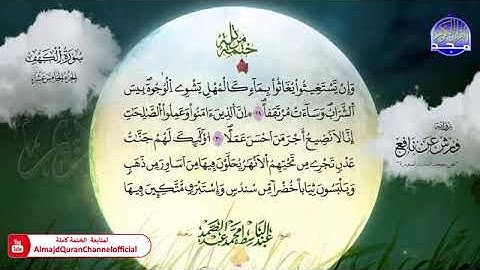 ختمة مرتلة
سورة الكهف
الجزء الخامس عشر
مجد
برواية
ورش عن نافع
وَإِنْ يَّسْتَغِيثُواْ يُغَاثُواْ بِمَآءٖ كَالْمُهْلِ يَشْوِے اِلْوُجُوهَ بِيسَ
اَلشَّرَابُ وَسَآءَتْ مُرْتَفَقاً ٢٩ اِنَّ اَلذِينَ ءَامَنُواْ وَعَمِلُواْ الصَّٰلِحَٰتِ
إِنَّا لَا نُضِيعُ أَجْرَ مَنَ اَحْسَنَ عَمَلًا ٣٠ اُوْلَٰٓئِكَ لَهُمْ جَنَّٰتُ
عَدْنٖ تَجْرِے مِن تَحْتِهِمُ اُلَانْهَٰرُ يُحَلَّوْنَ فِيهَا مِنَ اَسَاوِرَ مِن ذَهَبٖ
وَيَلْبَسُونَ ثِيَاباً خُضْراٗ مِّن سُندُسٖ وَإِسْتَبْرَقٖ مُّتَّكِـِٕينَ فِيهَا
عبد الباسط محمد عبد الصمد
لمتابعة الختمة كاملة
AlmajdQuranChannelofficial